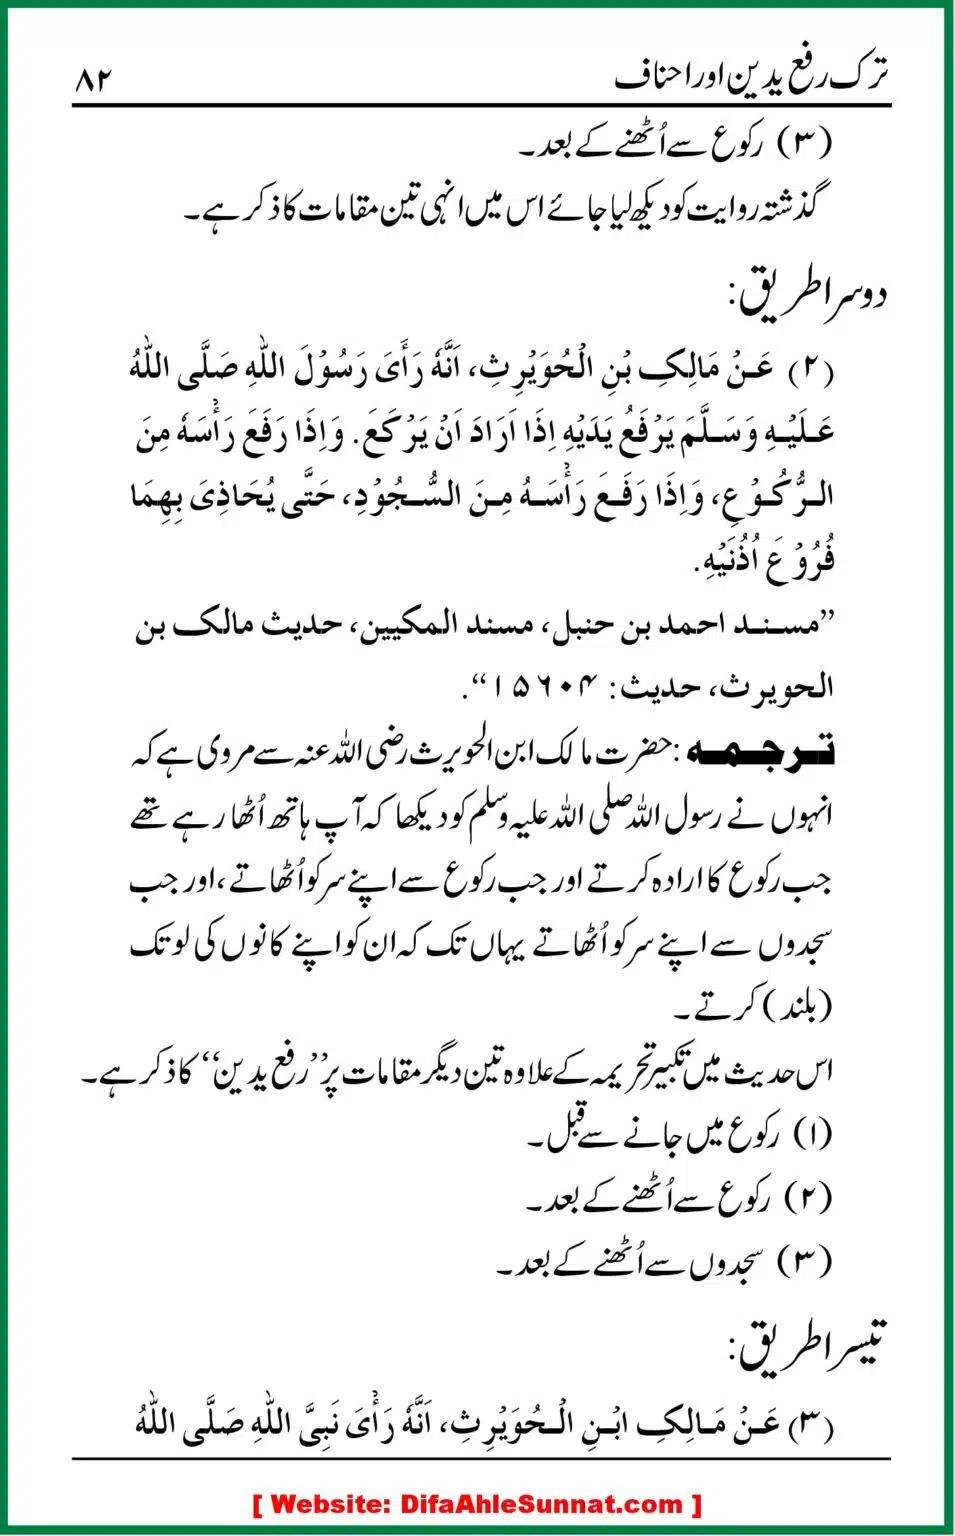 ترک رفع یدین اور احناف ۸۲
(۳) رکوع سے اُٹھنے کے بعد۔
گذشتہ روایت کو دیکھ لیا جائے اس میں انہی تین مقامات کا ذکر ہے۔
دوسرا طریق:
(۲) عَنْ مَالِكِ بْنِ الْحُوَيْرِثِ، اَنَّهٗ رَأَىَ رَسُوْلَ اللّٰهِ صَلَّى اللّٰهُ
عَلَيْهِ وَسَلَّمَ يَرْفَعُ يَدَيْهِ اِذَا اَرَادَ اَنْ يَرْكَعَ. وَاِذَا رَفَعَ رَأْسَهٗ مِنَ
الرُّكُوْعِ، وَاِذَا رَفَعَ رَأْسَهُ مِنَ السُّجُوْدِ، حَتَّى يُحَاذِىَ بِهِمَا
فُرُوْعَ اُذُنَيْهِ.
”مسند احمد بن حنبل، مسند المکیین، حدیث مالک بن
الحویرث، حدیث: ۱۵۶۰۴“.
ترجمه: حضرت مالک ابن الحویرث رضی اللہ عنہ سے مروی ہے کہ
انہوں نے رسول اللہ صلی اللہ علیہ وسلم کو دیکھا کہ آپ ہاتھ اُٹھا رہے تھے
جب رکوع کا ارادہ کرتے اور جب رکوع سے اپنے سر کو اُٹھاتے، اور جب
سجدوں سے اپنے سر کو اُٹھاتے یہاں تک کہ ان کو اپنے کانوں کی لو تک
(بلند) کرتے۔
اس حدیث میں تکبیر تحریمہ کے علاوہ تین دیگر مقامات پر ”رفع یدین“ کا ذکر ہے۔
(۱) رکوع میں جانے سے قبل۔
(۲) رکوع سے اُٹھنے کے بعد۔
(۳) سجدوں سے اُٹھنے کے بعد۔
تیسرا طریق:
(۳) عَنْ مَالِكِ ابْنِ الْحُوَيْرِثِ، اَنَّهٗ رَأَىَ نَبِيَّ اللّٰهِ صَلَّى اللّٰهُ
[ Website: DifaAhleSunnat.com ]